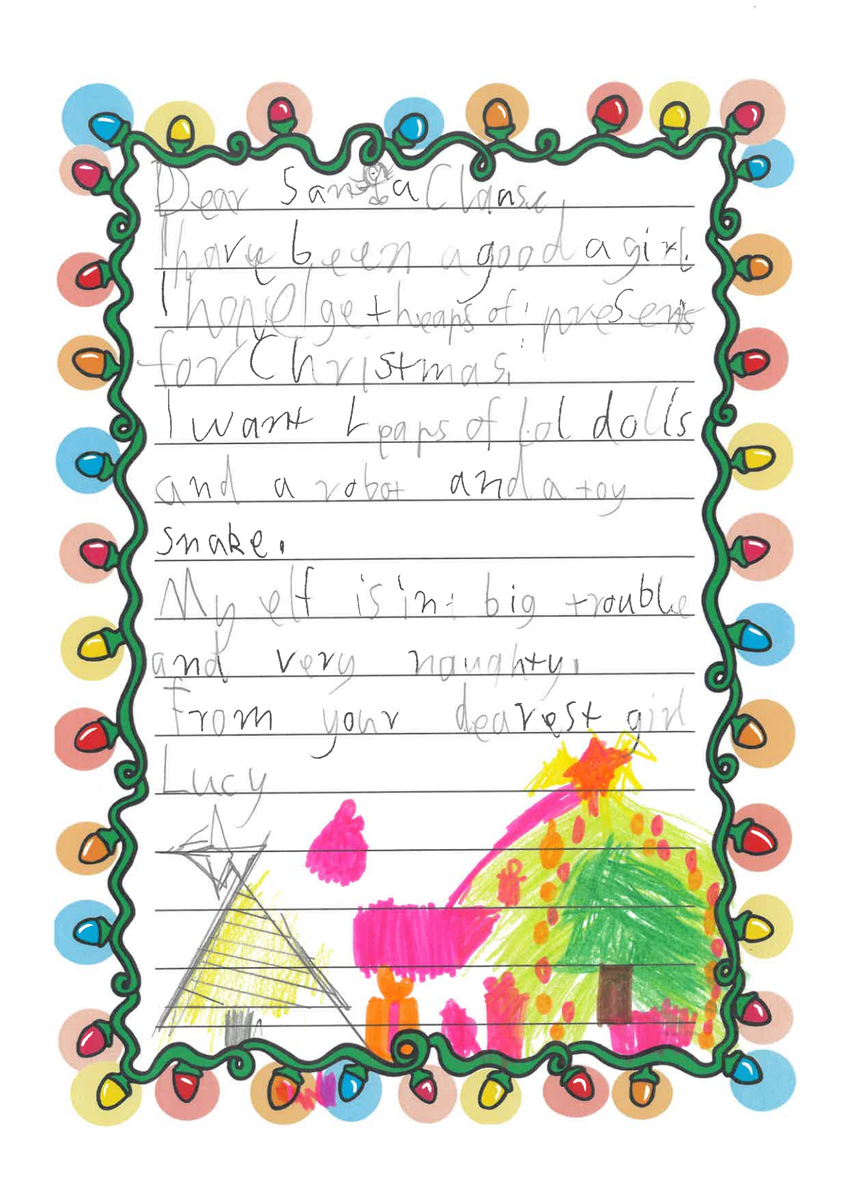 Dear Santa Clanse,
I have been a good a girl.
I hope I get heaps of presents
for Christmas.
I want heaps of lol dolls
and a robot and a toy
snake.
My elf is in big trouble
and very naughty.
From your dearest girl
Lucy